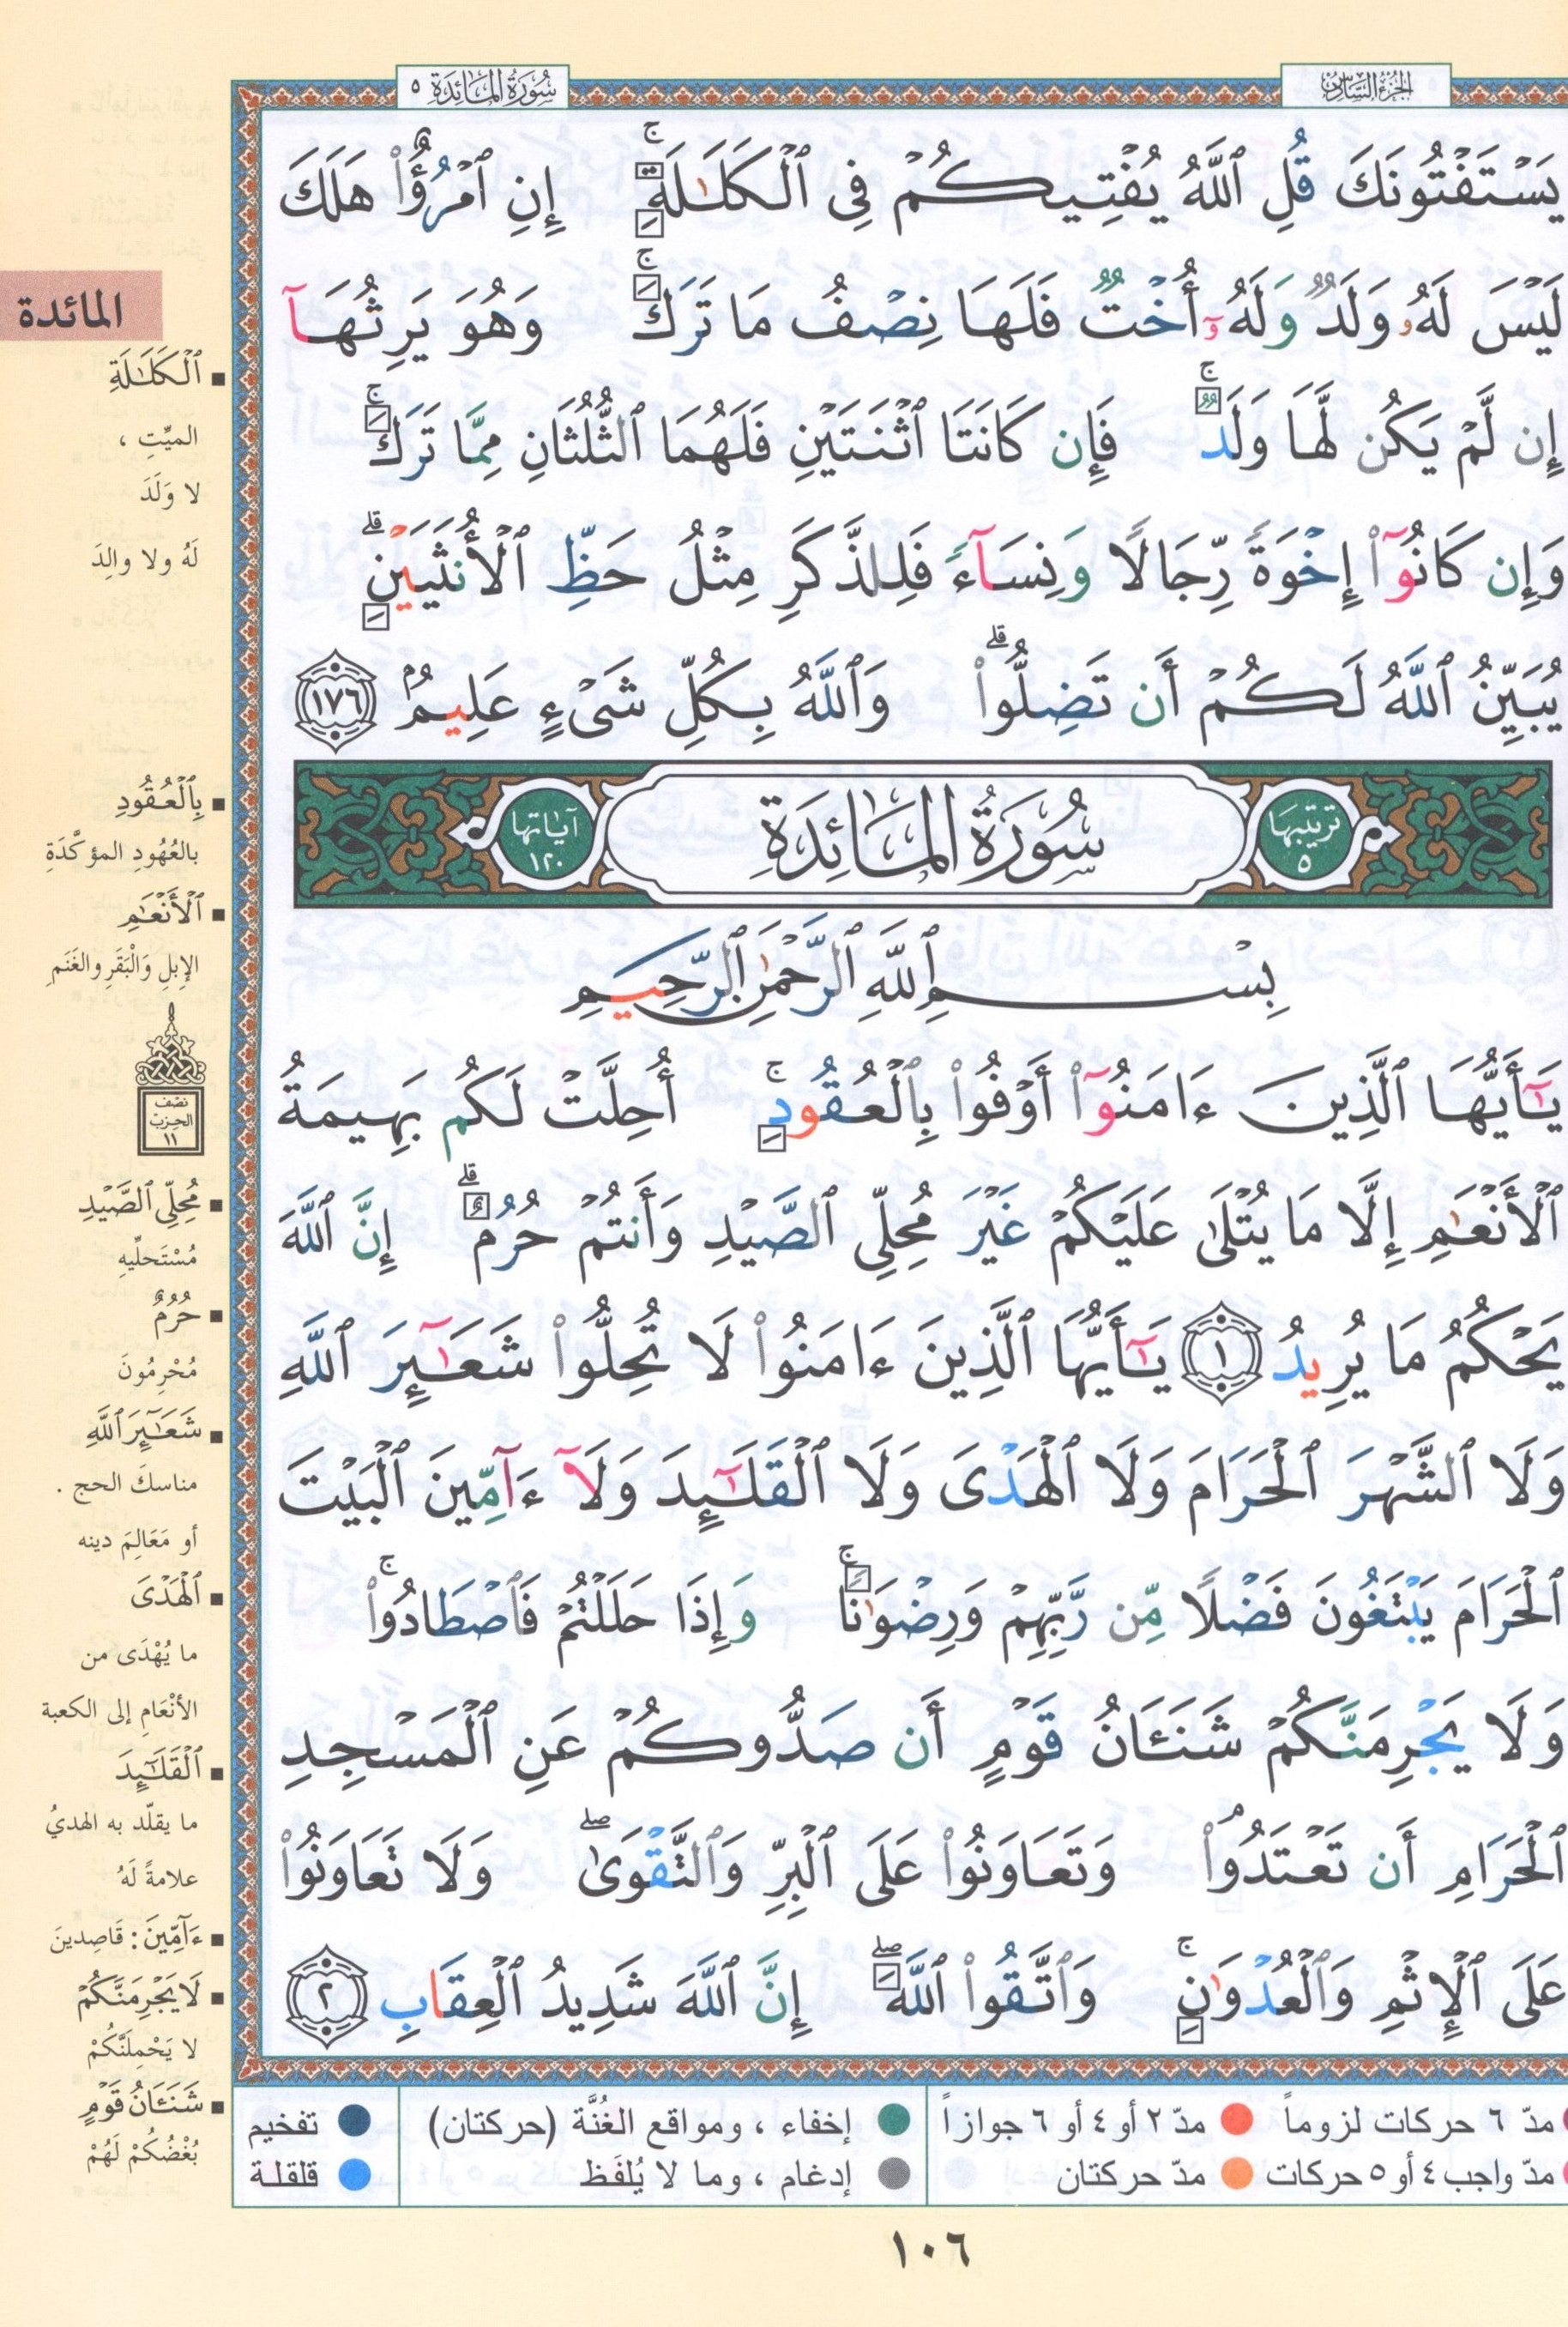 الجزء السادس
سورة المائدة ٥
يَسْتَفْتُونَكَ قُلِ ٱللَّهُ يُفْتِيكُمْ فِى ٱلْكَلَـٰلَةِ ۚ إِنِ ٱمْرُؤٌا۟ هَلَكَ
لَيْسَ لَهُۥ وَلَدٌ وَلَهُۥٓ أُخْتٌ فَلَهَا نِصْفُ مَا تَرَكَ ۚ وَهُوَ يَرِثُهَآ
إِن لَّمْ يَكُن لَّهَا وَلَدٌ ۚ فَإِن كَانَتَا ٱثْنَتَيْنِ فَلَهُمَا ٱلثُّلُثَانِ مِمَّا تَرَكَ ۚ
وَإِن كَانُوٓا۟ إِخْوَةً رِّجَالًا وَنِسَآءً فَلِلذَّكَرِ مِثْلُ حَظِّ ٱلْأُنثَيَيْنِ ۗ
يُبَيِّنُ ٱللَّهُ لَكُمْ أَن تَضِلُّوا۟ ۗ وَٱللَّهُ بِكُلِّ شَىْءٍ عَلِيمٌۢ ١٧٦
ترتيبها ٥ سُورَةُ المَائِدَةِ آياتها ١٢٠
بِسْمِ ٱللَّهِ ٱلرَّحْمَـٰنِ ٱلرَّحِيمِ
يَـٰٓأَيُّهَا ٱلَّذِينَ ءَامَنُوٓا۟ أَوْفُوا۟ بِٱلْعُقُودِ ۚ أُحِلَّتْ لَكُم بَهِيمَةُ
ٱلْأَنْعَـٰمِ إِلَّا مَا يُتْلَىٰ عَلَيْكُمْ غَيْرَ مُحِلِّى ٱلصَّيْدِ وَأَنتُمْ حُرُمٌ ۗ إِنَّ ٱللَّهَ
يَحْكُمُ مَا يُرِيدُ ١ يَـٰٓأَيُّهَا ٱلَّذِينَ ءَامَنُوا۟ لَا تُحِلُّوا۟ شَعَـٰٓئِرَ ٱللَّهِ
وَلَا ٱلشَّهْرَ ٱلْحَرَامَ وَلَا ٱلْهَدْىَ وَلَا ٱلْقَلَـٰٓئِدَ وَلَآ ءَآمِّينَ ٱلْبَيْتَ
ٱلْحَرَامَ يَبْتَغُونَ فَضْلًا مِّن رَّبِّهِمْ وَرِضْوَٰنًا ۚ وَإِذَا حَلَلْتُمْ فَٱصْطَادُوا۟ ۚ
وَلَا يَجْرِمَنَّكُمْ شَنَـَٔانُ قَوْمٍ أَن صَدُّوكُمْ عَنِ ٱلْمَسْجِدِ
ٱلْحَرَامِ أَن تَعْتَدُوا۟ ۘ وَتَعَاوَنُوا۟ عَلَى ٱلْبِرِّ وَٱلتَّقْوَىٰ ۖ وَلَا تَعَاوَنُوا۟
عَلَى ٱلْإِثْمِ وَٱلْعُدْوَٰنِ ۚ وَٱتَّقُوا۟ ٱللَّهَ ۖ إِنَّ ٱللَّهَ شَدِيدُ ٱلْعِقَابِ ٢
المائدة
ٱلْكَلَـٰلَةِ
الميِّتِ ،
لا وَلَدَ
لَهُ ولا والِدَ
بِٱلْعُقُودِ
بالعُهُودِ المؤكَّدَةِ
ٱلْأَنْعَـٰمِ
الإبِلِ وَالْبَقَرِ والغَنَمِ
نصف
الحزب
١١
مُحِلِّى ٱلصَّيْدِ
مُسْتَحلِّيهِ
حُرُمٌ
مُحْرِمُونَ
شَعَـٰٓئِرَ ٱللَّهِ
مناسكَ الحج .
أو مَعَالِمَ دينه
ٱلْهَدْىَ
ما يُهْدَى من
الأَنْعَامِ إلى الكعبة
ٱلْقَلَـٰٓئِدَ
ما يقلّد به الهديُ
علامةً لَهُ
ءَآمِّينَ : قَاصِدينَ
لَا يَجْرِمَنَّكُمْ
لا يَحْمِلَنَّكُمْ
شَنَـَٔانُ قَوْمٍ
بُغْضُكُمْ لَهُمْ
مدّ ٦ حركات لزوماً مدّ ٢ أو ٤ أو ٦ جوازاً إخفاء ، ومواقع الغُنَّة (حركتان) تفخيم
مدّ واجب ٤ أو ٥ حركات مدّ حركتان إدغام ، وما لا يُلفَظ قلقلة
١٠٦